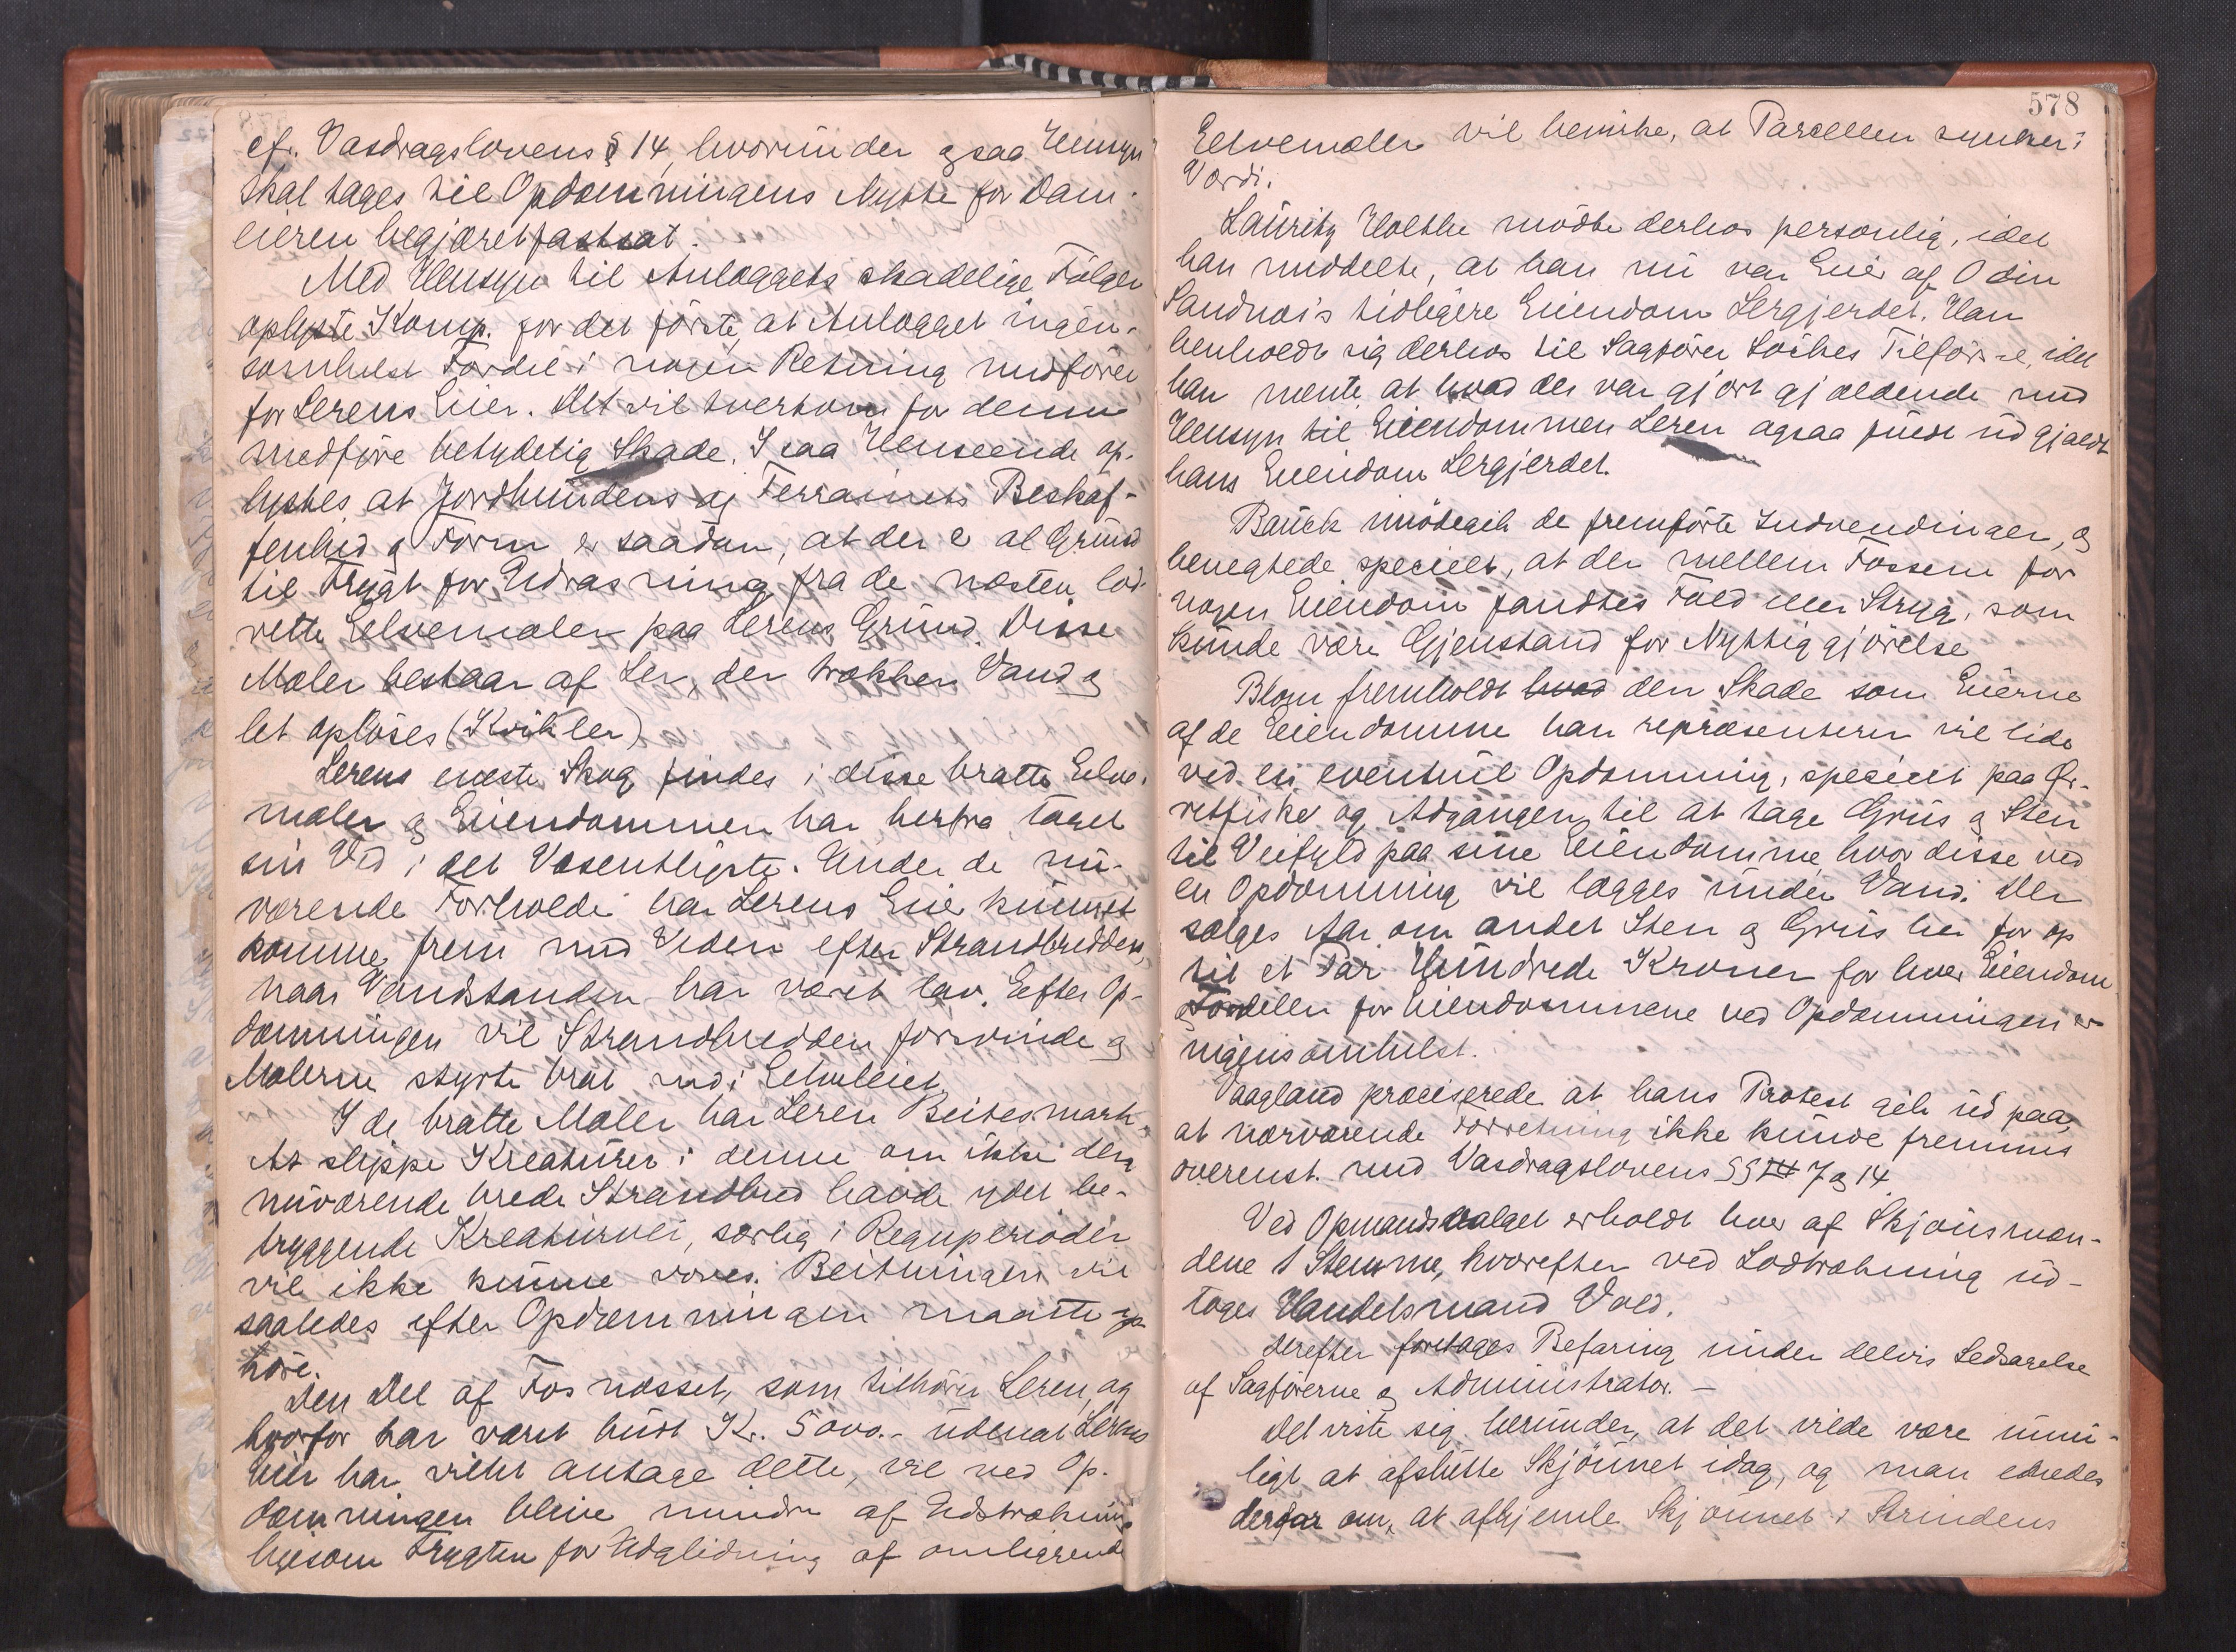 cfr. Vasdragslovens § 14, hvorunder ogsaa Hensyn
skal tages til Opdæmningens Nytte for Dam-
eieren begjæret fastsat.
Med Hensyn til Anlæggets skadelige Følger
oplyste Komp. for det første, at Anlægget ingen-
somhelst Fordel i nogen Retning medfører
for Lerens Eier. Det vil tvertom for denne
medføre betydelig Skade. I saa Henseende op-
lystes at Jordbundens og Terrainets Beskaf-
fenhed og Form er saadan, at der er al Grund
til Frygt for Udrasning fra de næsten lod-
rette Elvemæler paa Lerens Grund. Disse
Mæler bestaar af Ler, der trækker Vand og
let opløses (Kvikler)
Lerens eneste Skog findes i disse bratte Elve-
mæler og Eiendommen har herfra taget
sin Ved i det Væsentligste. Under de nu-
værende Forholde har Lerens Eier kunnet
komme frem med Veden efter Strandbredden,
naar Vandstanden har været lav. Efter Op-
dæmningen vil Strandbredden forsvinde og
Mælerne styrte brat ned i Elveleiet.
I de bratte Mæler har Leren Beitesmark.
At slippe Kreaturer i denne om ikke den
nuværende brede Strandbred havde ydet be-
tryggende Kreaturvei, særlig i Regnperioder
vil ikke kunne voves. Beitningen vil
saaledes efter Opdæmningen maatte op-
høre.
Den Del af Fosnæsset, som tilhører Leren, og
hvorfor har været budt Kr. 5000.- uden at Lerens
Eier har villet antage dette, vil ved Op-
dæmningen blive mindre af Udstrækning
ligesom Frygten for Udglidning af omliggende
578
Elvemæler vil bevirke, at Parcellen synker i
Værdi.
Lauritz Holthe mødte derhos personlig, idet
han meddelte, at han nu var Eier af Odin
Sandnæs tidligere Eiendom Lergjerdet. Han
henholdt sig derhos til Sagfører Tilførsel, idet
han mente at hvad der var gjort gjældende med
Hensyn til Eiendommen Leren ogsaa fuldt ud gjaldt
hans Eiendom Lergjerdet.
Bauck imødegik de fremførte Indvendinger, og
benegtede specielt, at der mellem Fossene for
nogen Eiendom fandtes Fald eller Stryg, som
kunde være Gjenstand for Nyttiggjørelse
Blom fremholdt hvad den Skade som Eierne
af de Eiendomme han repræsenterer vil lide
ved en eventuel Opdæmning, specielt paa Ør-
retfiske og Adgangen til at tage Grus og Sten
til Veifyld paa sine Eiendomme, hvor disse ved
en Opdæmning vil lægges under Vand. Der
sælges Aar om andet Sten og Grus her for op
til et Par Hundrede Kroner for hver Eiendom
og Fordelen for Eiendommene ved Opdæmningen er
ingensomhelst.
Vaagland præciserede at hans Protest gik ud paa,
at nærværende Forretning ikke kunde fremmes
overenst. med Vasdragslovens §§ 7 og 14
Ved Opmandsvalget erholdt hver af Skjønsmæn-
dene 1 Stemme, hvorefter ved Lodtrækning ud-
toges Handelsmand Vold.
Derefter foretages Befaring under delvis Ledsagelse
af Sagførerne og Administrator. -
Det viste sig herunder, at det vilde være umu-
ligt at afslutte Skjønnet idag, og man enedes
derfor om, at afhjemle Skjønnet i Strindens